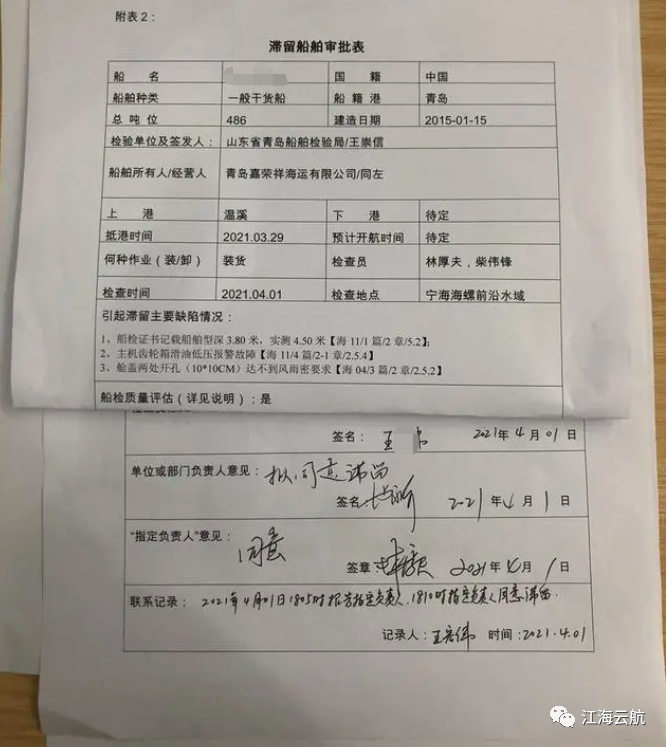 附表2：
滞留船舶审批表
船 名 国 籍 中国
船舶种类 一般干货船 船 籍 港 青岛
总 吨 位 486 建造日期 2015-01-15
检验单位及签发人： 山东省青岛船舶检验局/王崇信
船舶所有人/经营人 青岛嘉荣祥海运有限公司/同左
上 港 温溪 下 港 待定
抵港时间 2021.03.29 预计开航时间 待定
何种作业（装/卸） 装货 检查员 林厚夫，柴伟锋
检查时间 2021.04.01 检查地点 宁海海螺前沿水域
引起滞留主要缺陷情况：
1、船检证书记载船舶型深 3.80 米，实测 4.50 米【海 11/1 篇/2 章/5.2】;
2、主机齿轮箱滑油低压报警故障【海 11/4 篇/2-1 章/2.5.4】
3、舱盖两处开孔（10*10CM）达不到风雨密要求【海 04/3 篇/2 章/2.5.2】
船检质量评估（详见说明）：是
签名： 王 2021年 4 月 01 日
单位或部门负责人意见： 拟同意滞留
签名： 2021 年 4 月 1 日
“指定负责人”意见： 同意
签章 2021 年 4 月 1 日
联系记录： 2021年4月01日1805时报告指定负责人，1810时指定负责人同意滞留.
记录人： 时间：2021.4.01
江海云航